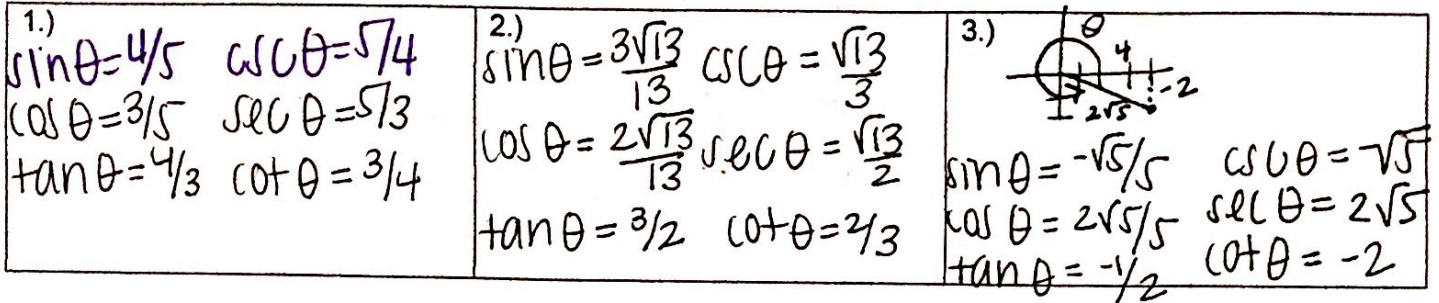 1.)
sinθ=4/5 cscθ=5/4
cosθ=3/5 secθ=5/3
tanθ=4/3 cotθ=3/4
2.)
sinθ=3√13/13 cscθ=√13/3
cosθ=2√13/13 secθ=√13/2
tanθ=3/2 cotθ=2/3
3.)
θ
4
-2
2√5
sinθ=-√5/5 cscθ=-√5
cosθ=2√5/5 secθ=2√5
tanθ=-1/2 cotθ=-2